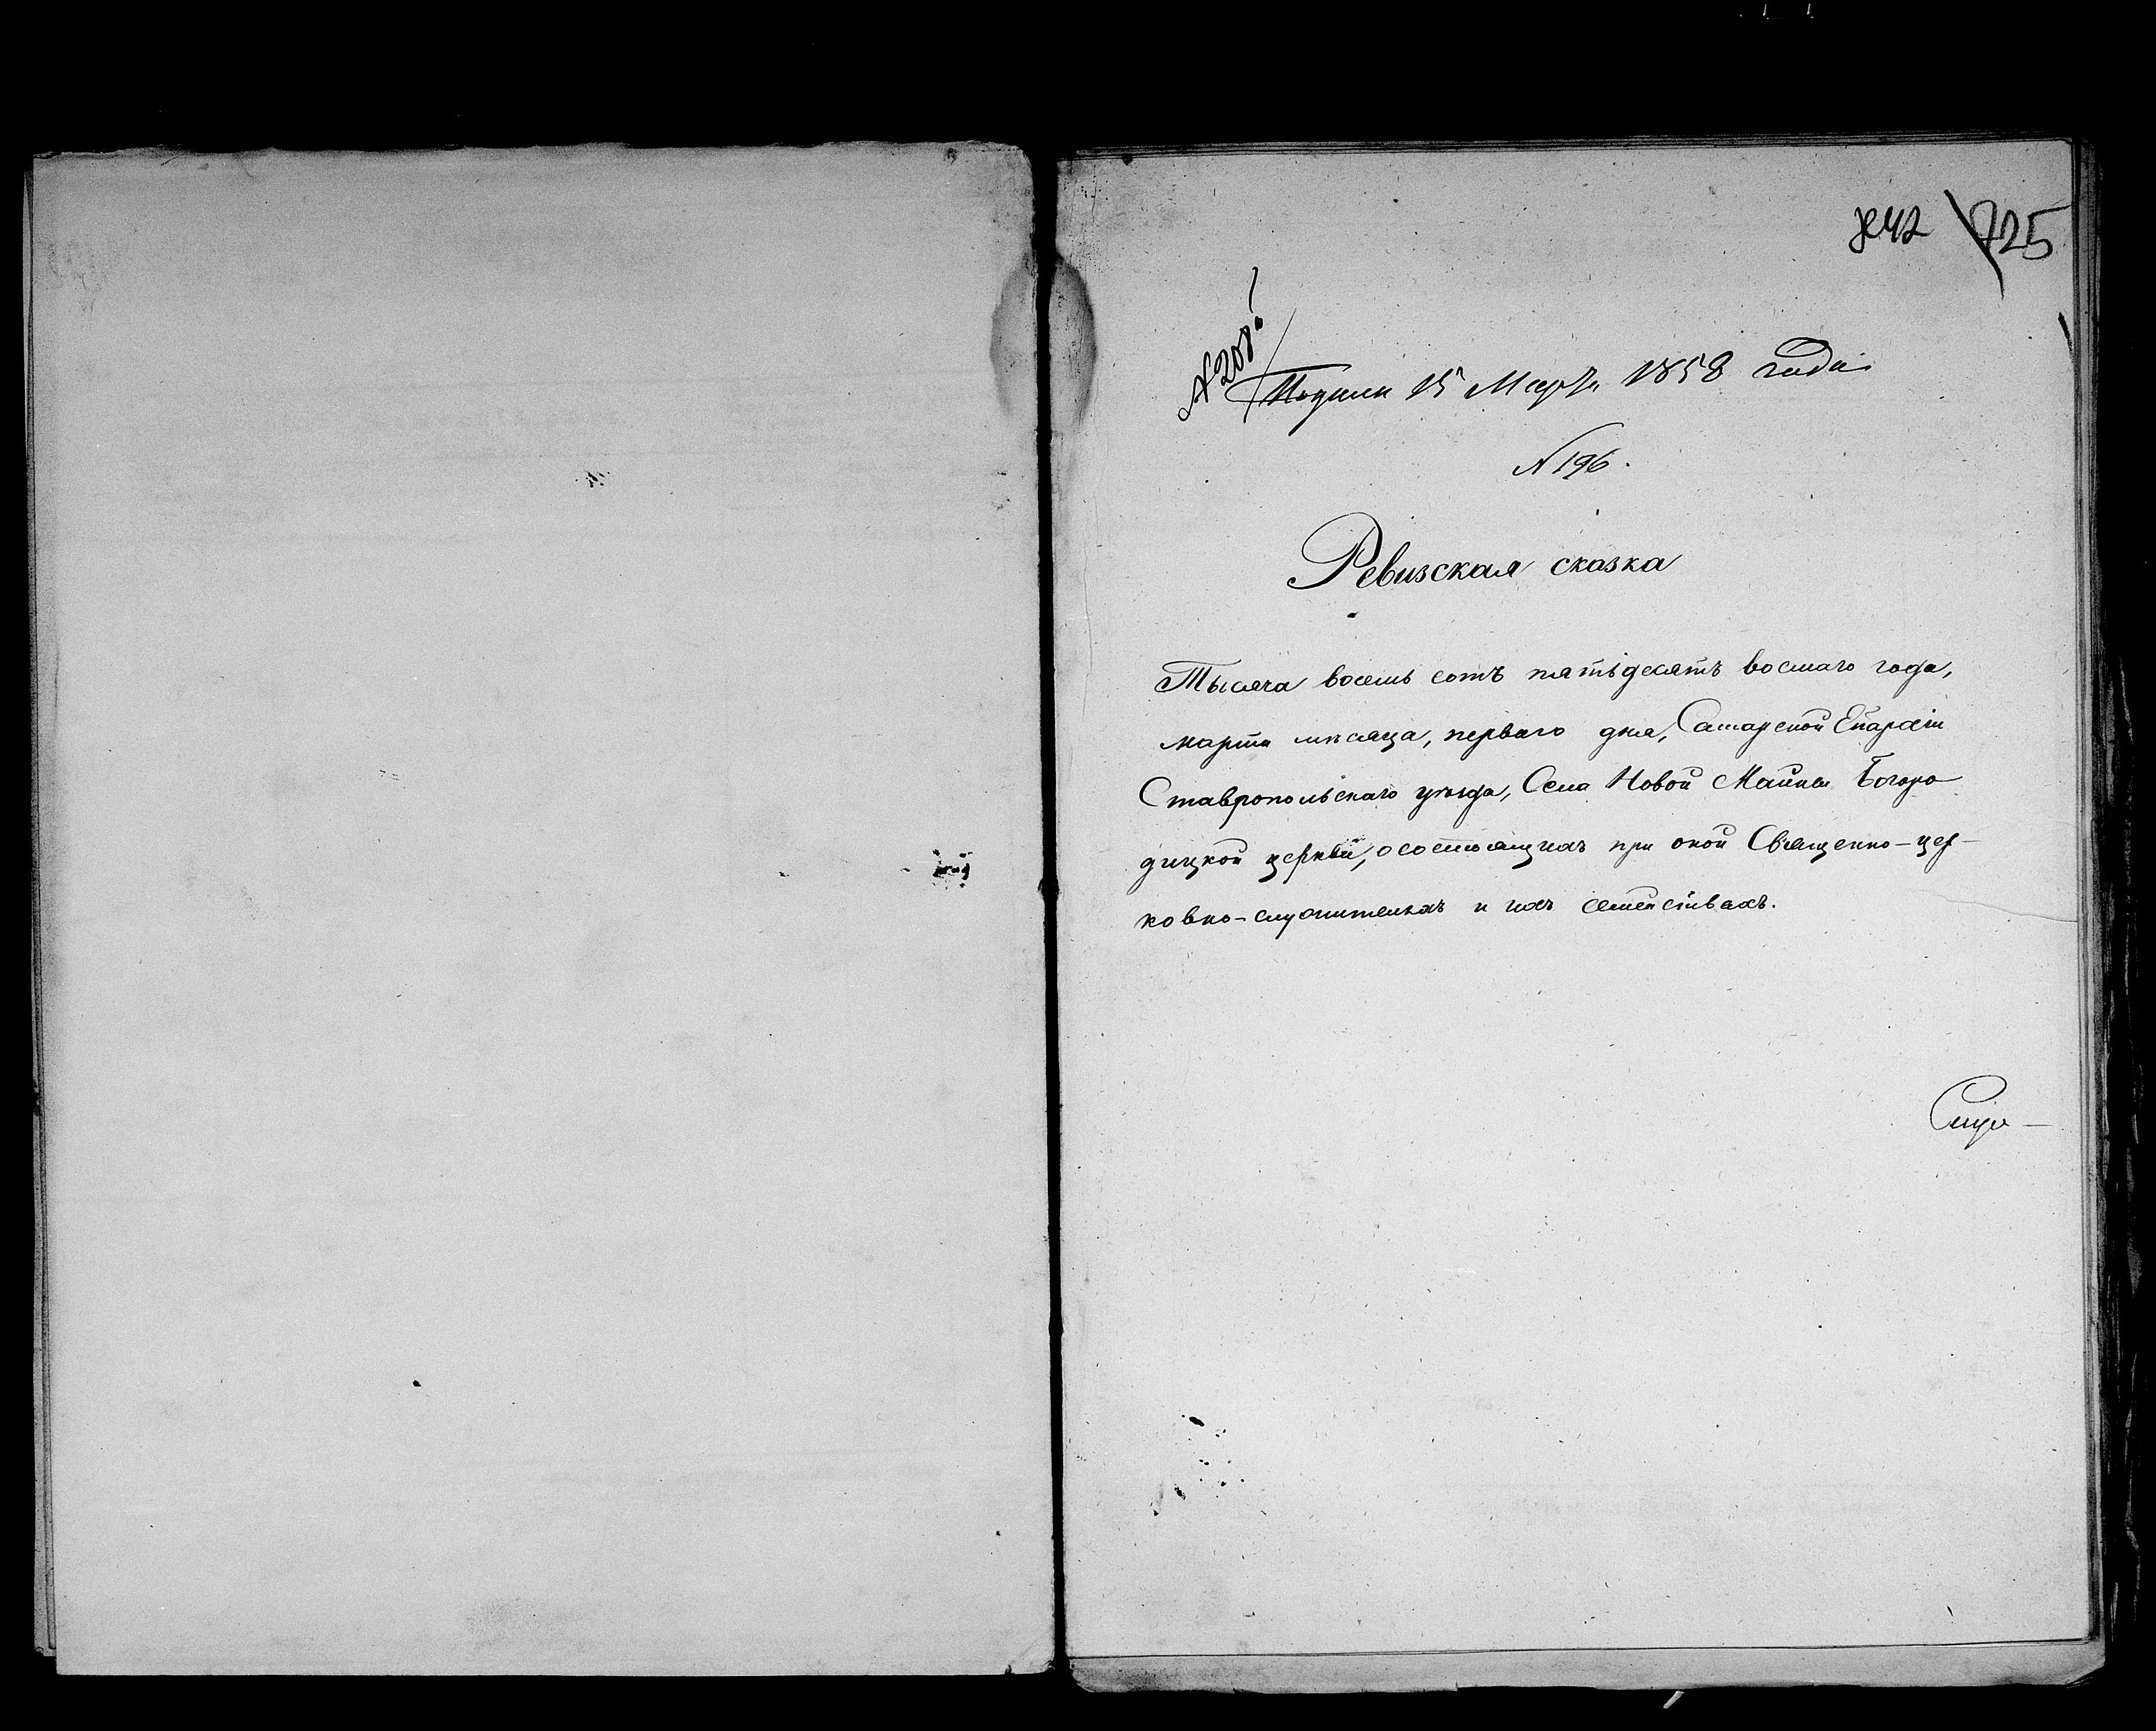 742 725
№ 208.
Получ 15 Марта 1858 года
№ 196.
Ревизская сказка
Тысяча восемь сотъ пятьдесятъ восмаго года,
марта мѣсяца, перваго дня, Самарской Епархіи
Ставропольскаго уѣзда, Села Новой Майны Богоро
дицкой церкви, о состоящихъ при оной Священно-цер-
ковно-служителяхъ и ихъ семействахъ.